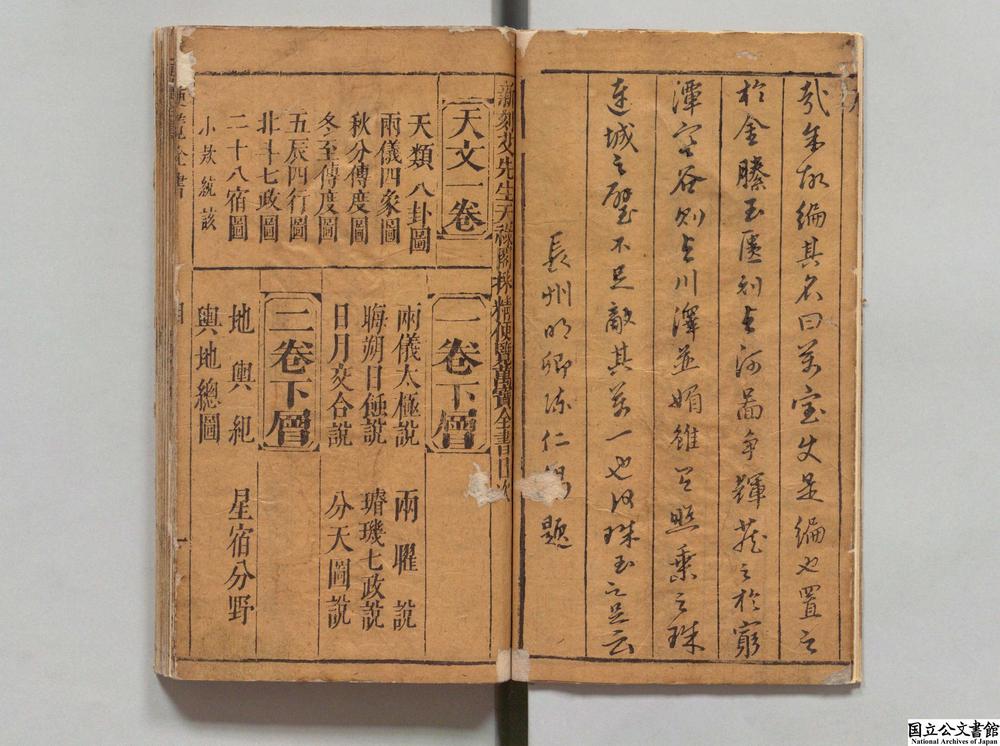 哉余故編其名曰萬宝夫是編也置之
於金縢玉匱則与河啚争輝蔵之於窮
潭空谷則与川澤並媚雖有照乗之珠
連城之璧不足敵其萬一也何珠玉之足云
長州明卿陳仁錫題
新刻艾先生天祿閣採精便覽萬寶全書目次
天文一卷
天類八卦圖
兩儀四象圖
秋分傳度圖
冬至傳度圖
五辰四行圖
北斗七政圖
二十八宿圖
小欵統該
一卷下層
兩儀太極說 兩曜說
晦朔日蝕說 璿璣七政說
日月交合說 分天圖說
二卷下層
地輿紀 星宿分野
輿地總圖
覽全書
目
国立公文書館
National Archives of Japan